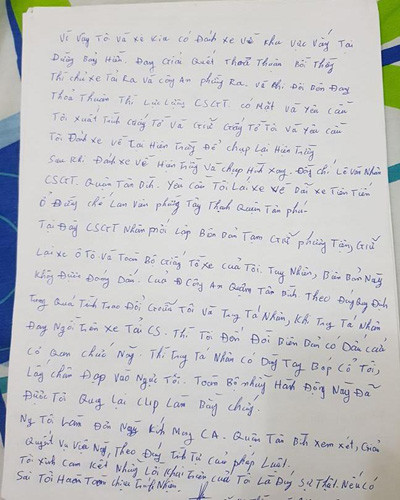 Vì Vậy Tôi và xe kia có Đánh xe về khu vực vắng Tại
Đường Bảy Hiền. Đang Giải Quyết Thoả Thuận Bồi Thường
Thì chủ xe Tải Ra và công An phường Ra. và khi Đôi Bên Đang
Thoả Thuận Thì Lực Lượng CSGT. có Mặt và Yêu cầu
Tôi xuất Trình Giấy Tờ và Giữ Giấy Tờ Tôi và Yêu cầu
Tôi Đánh xe về Lại Hiện Trường Để chụp Lại Hiện Trường
Sau Khi Đánh xe về Hiện Trường và chụp Hình xong. Đồng chí Lê Văn Nhân
CSGT. Quận Tân Bình. Yêu cầu Tôi Lái xe về Bãi xe Tiên Tiến
Ở Đường chế Lan Viên phường Tây Thạnh Quận Tân phú.
Tại Đây CSGT Nhân mới Lập Biên Bản Tạm Giữ phương Tiện, Giữ
Lại xe Ô Tô và Toàn Bộ Giấy Tờ xe của Tôi. Tuy Nhiên, Biên Bản Này
Không Được Đóng Dấu. Của Công An Quận Tân Bình Theo Đúng Quy Định
Trong Quá Trình Trao Đổi Giữa Tôi và Trung Tá Nhân, Khi Trung Tá Nhân
Đang Ngồi Trên xe Tải CS. Thì Tôi Đòi Đổi Biên Bản có Dấu của
Cơ Quan chức Năng. Thì Trung Tá Nhân Có Dùng Tay Bóp Cổ Tôi,
Lấy chân Đạp vào Ngực Tôi. Toàn Bộ những Hành Động Này Đã
Được Tôi Quay Lại Clip Làm Bằng chứng.
Nay Tôi Làm Đơn Này Kính Mong C.A. Quận Tân Bình Xem xét, Giải
Quyết Vụ Việc Này, Theo Đúng Trình Tự Của pháp Luật.
Tôi xin cam Kết Những Lời Khai Trên của Tôi Là Đúng Sự Thật. Nếu có
Sai Tôi Hoàn Toàn chịu Trách Nhiệm.